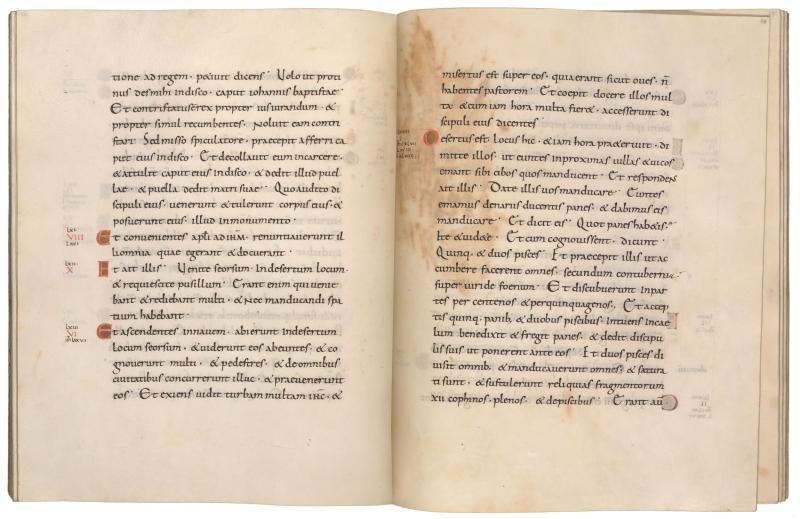 tione ad regem · petiuit dicens · Uolo ut proti
nus des mihi in disco · caput iohannis baptistae ·
Et contristatus est rex propter iusiurandum · &
propter simul recumbentes · Noluit eam contri
stari Sed misso spiculatore · praecepit afferri ca
put eius in disco · Et decollauit eum in carcere ·
& attulit caput eius in disco · & dedit illud puel
lae · & puella dedit matri suae · Quo audito di
scipuli eius · uenerunt & tulerunt corpus eius · &
posuerunt eius illud in monumento ·
LXI
VIII
Et conuenientes apli ad ihm · renuntiauerunt il
li omnia quae egerant & docuerant ·
LXII
X
Et ait illis · Uenite seorsum in desertum locum ·
& requiescite pusillum · Erant enim qui uenie
bant & rediebant multi · & nec manducandi spa
tium habebant ·
LXIII
VI
Et ascendentes in nauem · abierunt in desertum
locum seorsum · & uiderunt eos abeuntes · & co
gnouerunt multi · & pedestres · & de omnibus
ciuitatibus concurrerunt illuc · & praeuenerunt
eos · Et exiens uidit turbam multam ihc · &
misertus est super eos · quia erant sicut oues · n̄
habentes pastorem · Et coepit docere illos mul
ta · & cum iam hora multa fier& · accesserunt di
scipuli eius dicentes
Desertus est locus hic · & iam hora praeteriuit · di
mitte illos · ut euntes in proximas uillas & uicos
emant sibi cibos quos manducent · Et respondens
ait illis · Date illis uos manducare · Euntes
emamus denariis ducentis panes · & dabimus eis
manducare · Et dicit eis · Quot panes hab&is ·
Ite & uid&e · Et cum cognouissent · dicunt ·
Quinq · & duos pisces · Et praecepit illis ut ac
cumbere facerent omnes · secundum contubernia ·
super uiride foenum · Et discubuerunt in par
tes per centenos & per quinquagenos · Et accep
tis quinq · panib · & duobus piscibus · intuens in cae
lum benedixit & fregit panes · & dedit discipu
lis suis ut ponerent ante eos · Et duos pisces di
uisit omnib · & manducauerunt omnes · & satura
ti sunt · & sustulerunt reliquias fragmentorum
xii cophinos · plenos · & de piscibus · Erant au